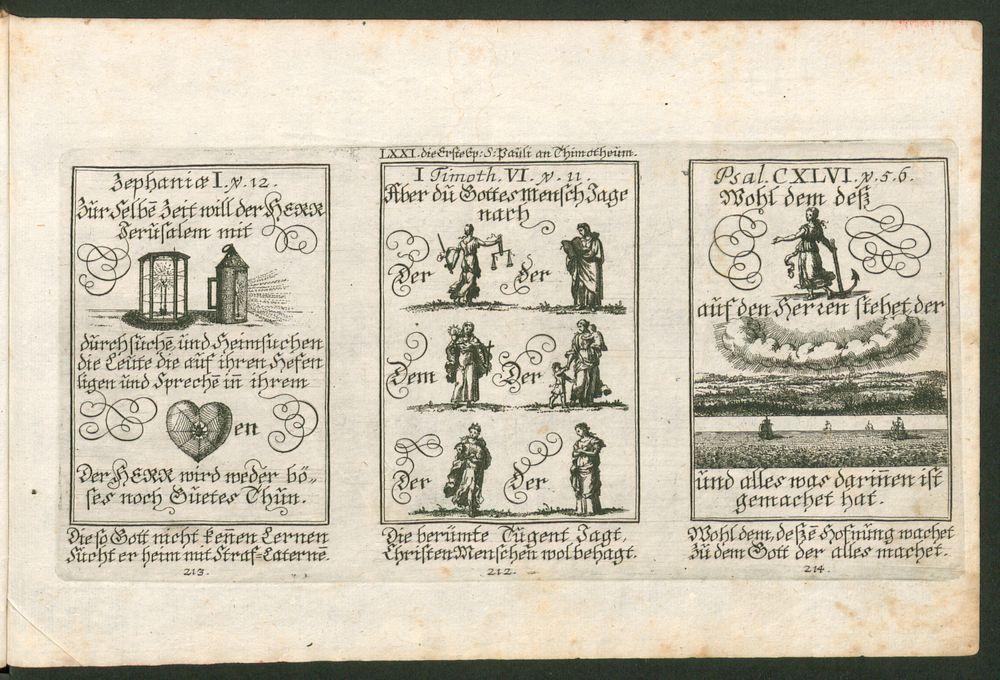 Zephaniæ I. v. 12.
Zur Selbē Zeit will der HERR
Jerusalem mit
durchsuchē und Heimsuchen
die Leute die auf ihren Hefen
ligen und Sprechē in ihrem
en
Der HERR wird weder bö-
ses noch Guetes Thun.
Die so Gott nicht keñen Lernen
Sucht er heim mit Straf-Laternē.
213.
LXXI. die Erste Ep: S: Pauli an Thimotheum.
I Timoth. VI. v. 11.
Aber du Gottes Mensch Jage
nach
Der der
Dem Der
Der der
Die berümte Tugent Jagt,
Christen Menschen wol behagt.
212.
Psal. CXLVI. v. 5.6.
Wohl dem deß
auf den Herren stehet, der
und alles was dariñen ist
gemachet hat.
Wohl dem, deßzē Hofnung wachet
Zu dem Gott der alles machet.
214.